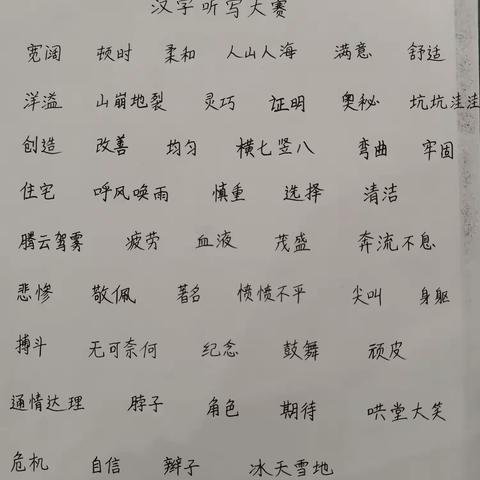 汉字听写大赛
宽阔 顿时 柔和 人山人海 满意 舒适
洋溢 山崩地裂 灵巧 证明 奥秘 坑坑洼洼
创造 改善 均匀 横七竖八 弯曲 牢固
住宅 呼风唤雨 慎重 选择 清洁
腾云驾雾 疲劳 血液 茂盛 奔流不息
悲惨 敬佩 著名 愤愤不平 尖叫 身躯
搏斗 无可奈何 纪念 鼓舞 顽皮
通情达理 脖子 角色 期待 哄堂大笑
危机 自信 辫子 冰天雪地